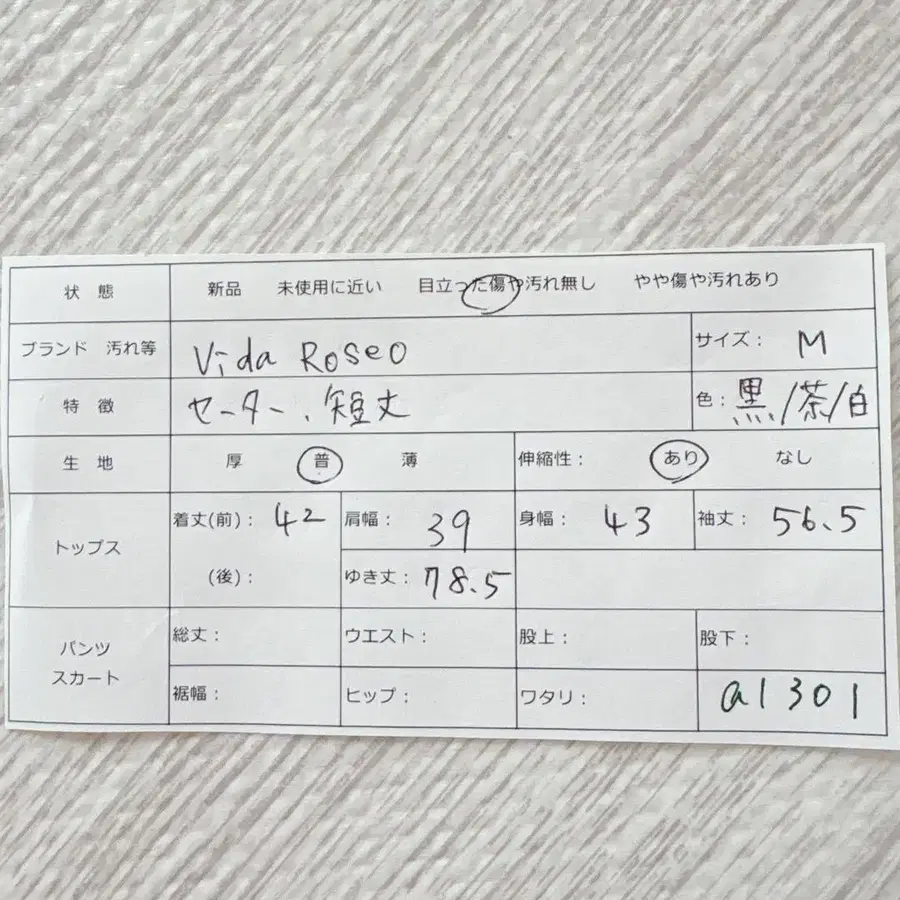 状 態 新品 未使用に近い 目立った傷や汚れ無し やや傷や汚れあり
ブランド 汚れ等 Vida Roseo サイズ： M
特 徴 セーター、短丈 色：黒/茶/白
生 地 厚 普 薄 伸縮性： あり なし
トップス 着丈(前)： 42 肩幅： 39 身幅： 43 袖丈： 56.5
(後)： ゆき丈： 78.5
パンツ スカート 総丈： ウエスト： 股上： 股下：
裾幅： ヒップ： ワタリ： a1301